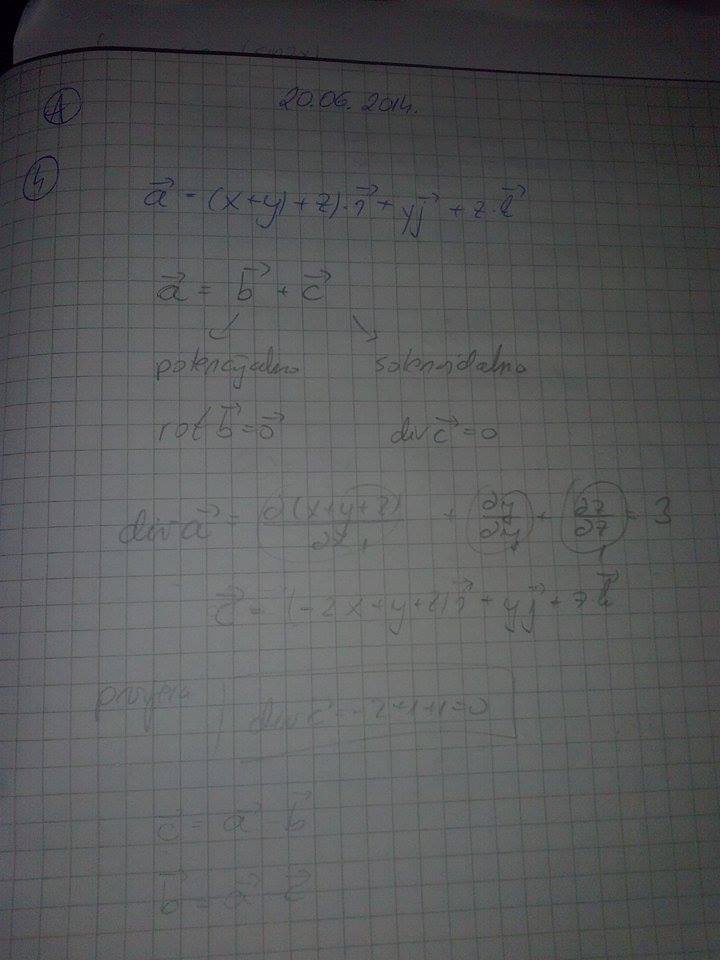 A
20.06. 2014.
4
a⃗ = (x+y+z)·i⃗ + yj⃗ + z·k⃗
a⃗ = b⃗ + c⃗
potencijalno solenoidalno
rot b⃗ = 0⃗ div c⃗ = 0
div a⃗ = ∂(x+y+z)/∂x + ∂y/∂y + ∂z/∂z = 3
c⃗ = (-2x+y+z)i⃗ + yj⃗ + zk⃗
provjera div c⃗ = -2+1+1=0
c⃗ = a⃗ - b⃗
b⃗ = a⃗ - c⃗